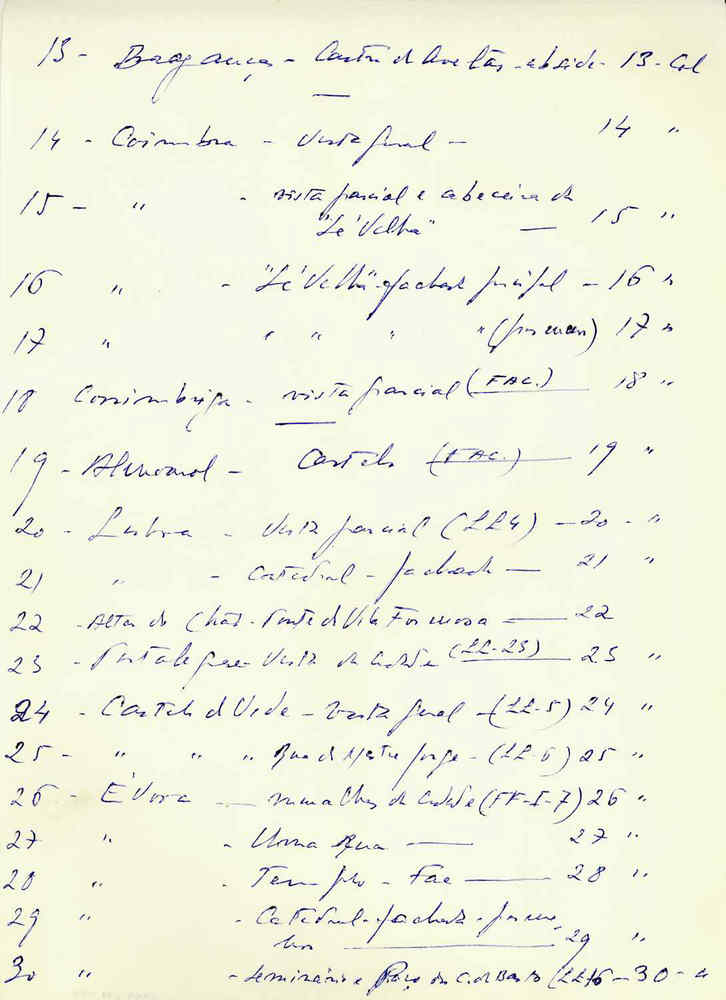 13 - Bragança - Castro d Avelãs - abside - 13 - Col
14 - Coimbra - Vista geral - 14 "
15 - " - vista parcial e cabeceira da
"Sé Velha" — 15 "
16 " - "Sé Velha" - fachada principal - 16 "
17 " " " " " (pormenor) 17 "
18 Conimbriga - vista parcial (FAC.) 18 "
19 - Almourol - Castelo (FAC.) 19 "
20 - Lisboa - Vista parcial (LL4) - 20 - "
21 " - Catedral - fachada — 21 "
22 - Alter do Chão - Ponte d Vila Formosa — 22
23 - Portalegre - Vista da cidade (LL-23) 23 "
24 - Castelo d Vide - vista geral - (LL-5) 24 "
25 - " " " Rua d Mestre Jorge - (LL-6) 25 "
26 - Évora - muralhas da cidade (FF-I-7) 26 "
27 " - Uma Rua — 27 "
28 " - Templo - Fac — 28 "
29 " - Catedral - fachada - porme
nor — 29 "
30 " - Seminário e Paço dos C. de Basto (LL16 - 30 - "